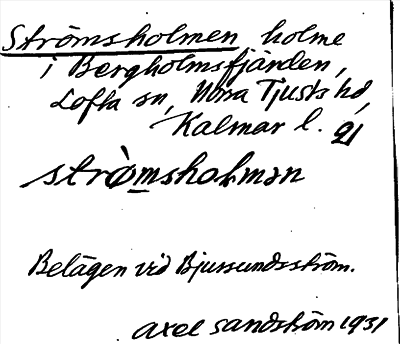 Strömsholmen holme
i Bergholmsfjärden,
Lofta sn, Norra Tjusts hd,
Kalmar l. 21
strò̀msholmən
Belägen vid Bjursundsström.
Axel Sandström 1931